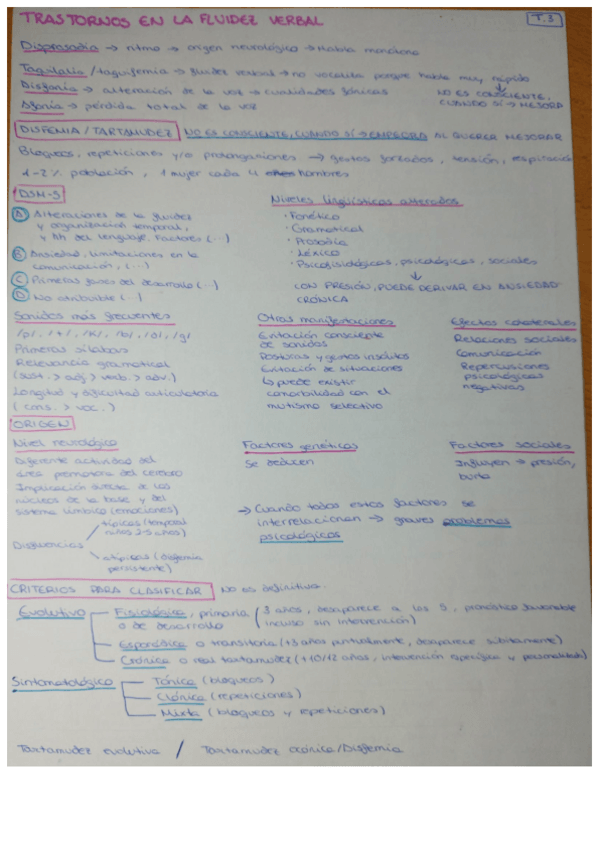 TRASTORNOS EN LA FLUIDEZ VERBAL
T.3
Disprosodia → ritmo → origen neurológico → Habla monótona
Taquilalia/taquifemia → fluidez verbal → no vocaliza porque habla muy rápido
Disfonía → alteración de la voz → cualidades fónicas
NO ES CONSCIENTE, CUANDO SÍ → MEJORA
Afonía → pérdida total de la voz
DISFEMIA/TARTAMUDEZ NO ES CONSCIENTE, CUANDO SÍ → EMPEORA AL QUERER MEJORAR
Bloqueos, repeticiones y/o prolongaciones → gestos forzados, tensión, respiración
1-2% población, 1 mujer cada 4 hombres
DSM-5
A Alteraciones de la fluidez
y organización temporal,
y hh del lenguaje. Factores (...)
B Ansiedad, limitaciones en la
comunicación, (...)
C Primeras fases del desarrollo (...)
D No atribuible (...)
Niveles lingüísticos alterados
· Fonético
· Gramatical
· Prosodia
· Léxico
· Psicofisiológicos, psicológicos, sociales
↓
CON PRESIÓN, PUEDE DERIVAR EN ANSIEDAD
CRÓNICA
Sonidos más frecuentes
/p/, /t/, /k/, /b/, /d/, /g/
Primeras sílabas
Relevancia gramatical
(sust. > adj > verb. > adv.)
Longitud y dificultad articulatoria
(cons. > voc.)
Otras manifestaciones
Evitación consciente
de sonidos
Posturas y gestos insólitos
Evitación de situaciones
↳ puede existir
comorbilidad con el
mutismo selectivo
Efectos colaterales
Relaciones sociales
Comunicación
Repercusiones
psicológicas
negativas
ORIGEN
Nivel neurológico
Diferente actividad del
área premotora del cerebro
Implicación directa de los
núcleos de la base y del
sistema límbico (emociones)
Disfluencias
típicas (temporal
niños 2-5 años)
atípicas (disfemia
persistente)
Factores genéticos
Se deducen
Factores sociales
Influyen → presión,
burla
→ Cuando todos estos factores se
interrelacionan → graves problemas
psicológicos
CRITERIOS PARA CLASIFICAR No es definitiva.
Evolutivo
Fisiológica, primaria (3 años, desaparece a los 5, pronóstico favorable
o de desarrollo incluso sin intervención)
Esporádica o transitoria (+3 años puntualmente, desaparece súbitamente)
Crónica o real tartamudez (+10/12 años, intervención específica y personalizada)
Sintomatológico
Tónica (bloqueos)
Clónica (repeticiones)
Mixta (bloqueos y repeticiones)
Tartamudez evolutiva / Tartamudez crónica/Disfemia